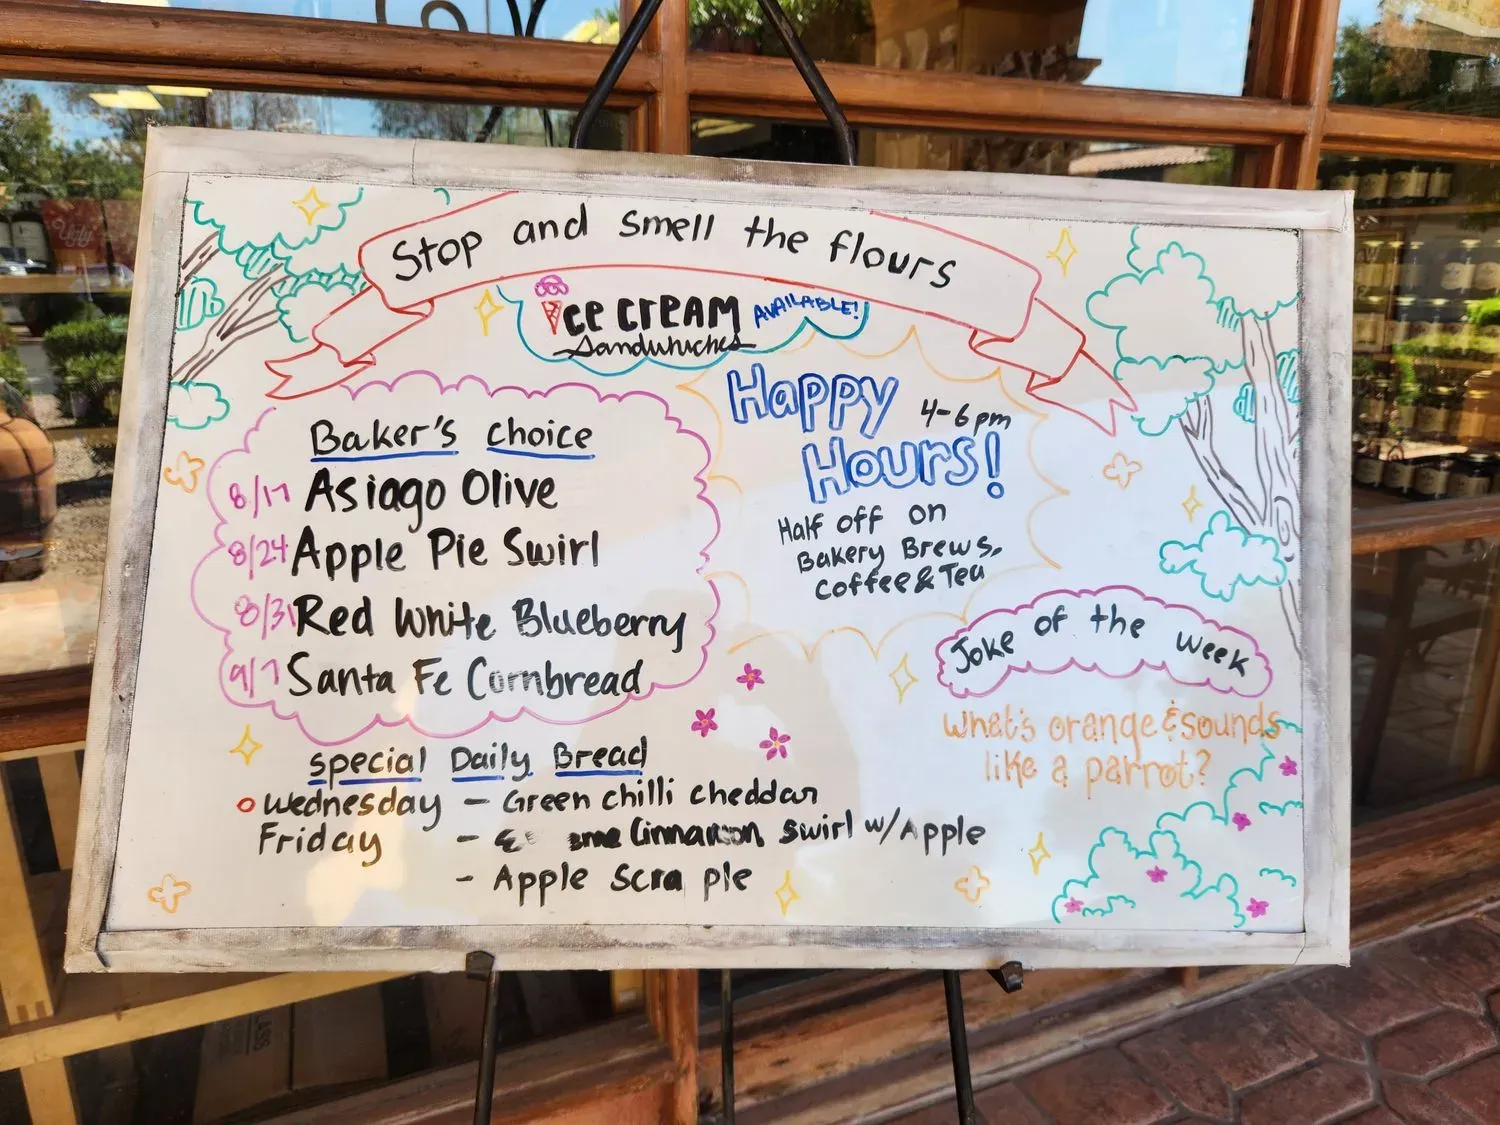 Stop and smell the flours
ice cream AVAILABLE!
Sandwiches
Happy
4-6pm
Hours!
Half off on
Bakery Brews,
Coffee & Tea
Baker's choice
8/17 Asiago Olive
8/24 Apple Pie Swirl
8/31 Red White Blueberry
9/7 Santa Fe Cornbread
Special Daily Bread
Wednesday - Green chilli cheddar
Friday - Cinnamon swirl w/Apple
- Apple Scra ple
Joke of the week
What's orange & sounds
like a parrot?
Ugly